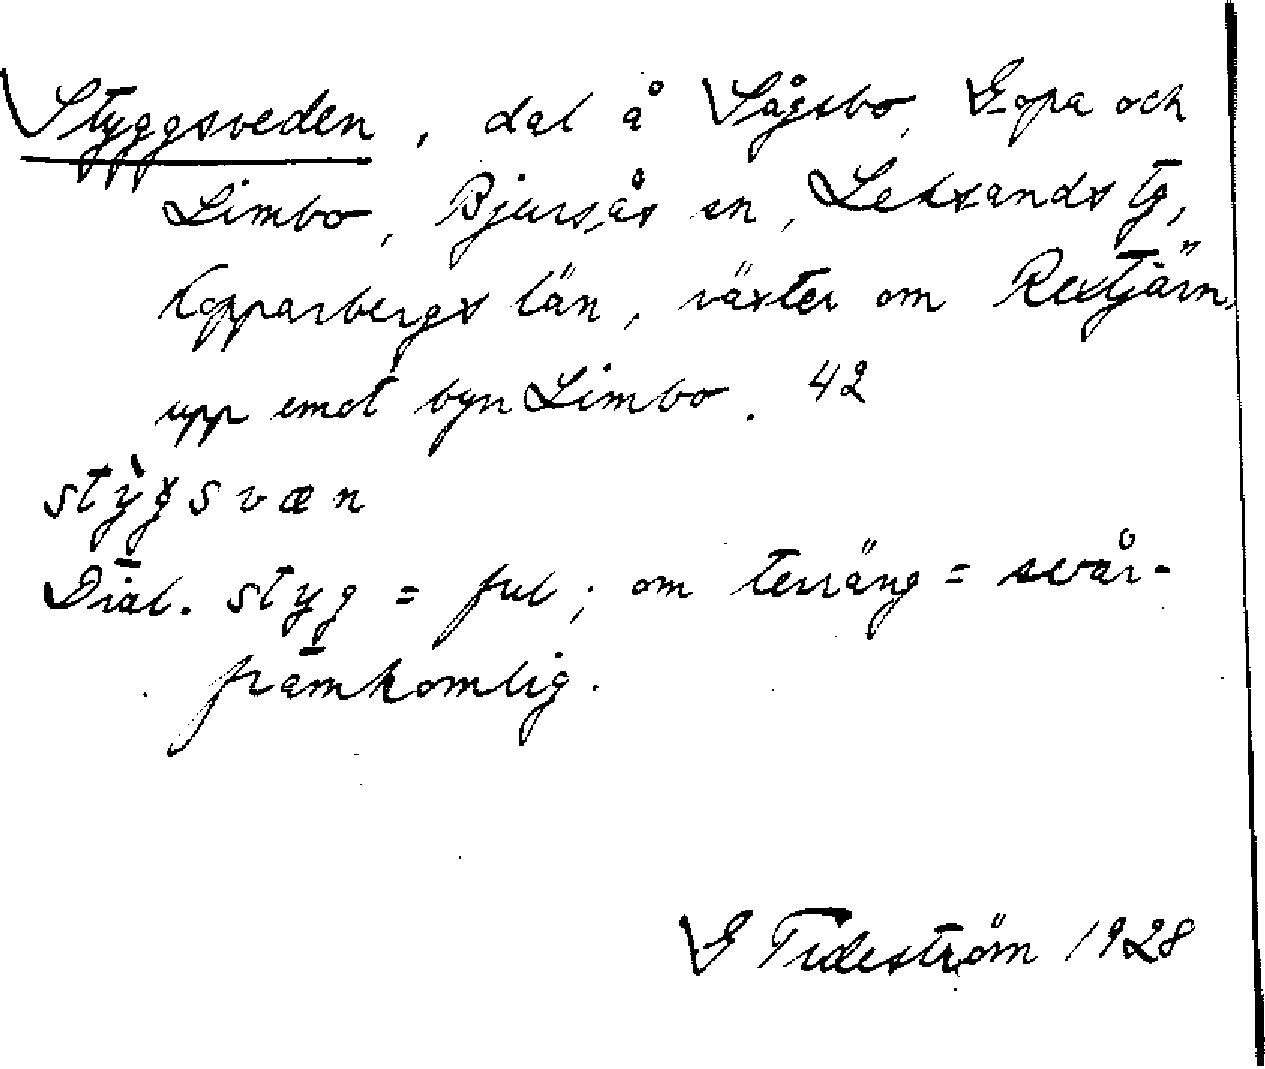 Styggsveden, dal å Sågsbo, Gopa och
Limbo, Bjursås sn, Leksands tg,
Kopparbergs län, väster om Rextjärn,
upp emot byn Limbo. 42
stỳgsvæn
Dial. styg = ful; om terräng = svår-
framkomlig.
G Tideström 1928